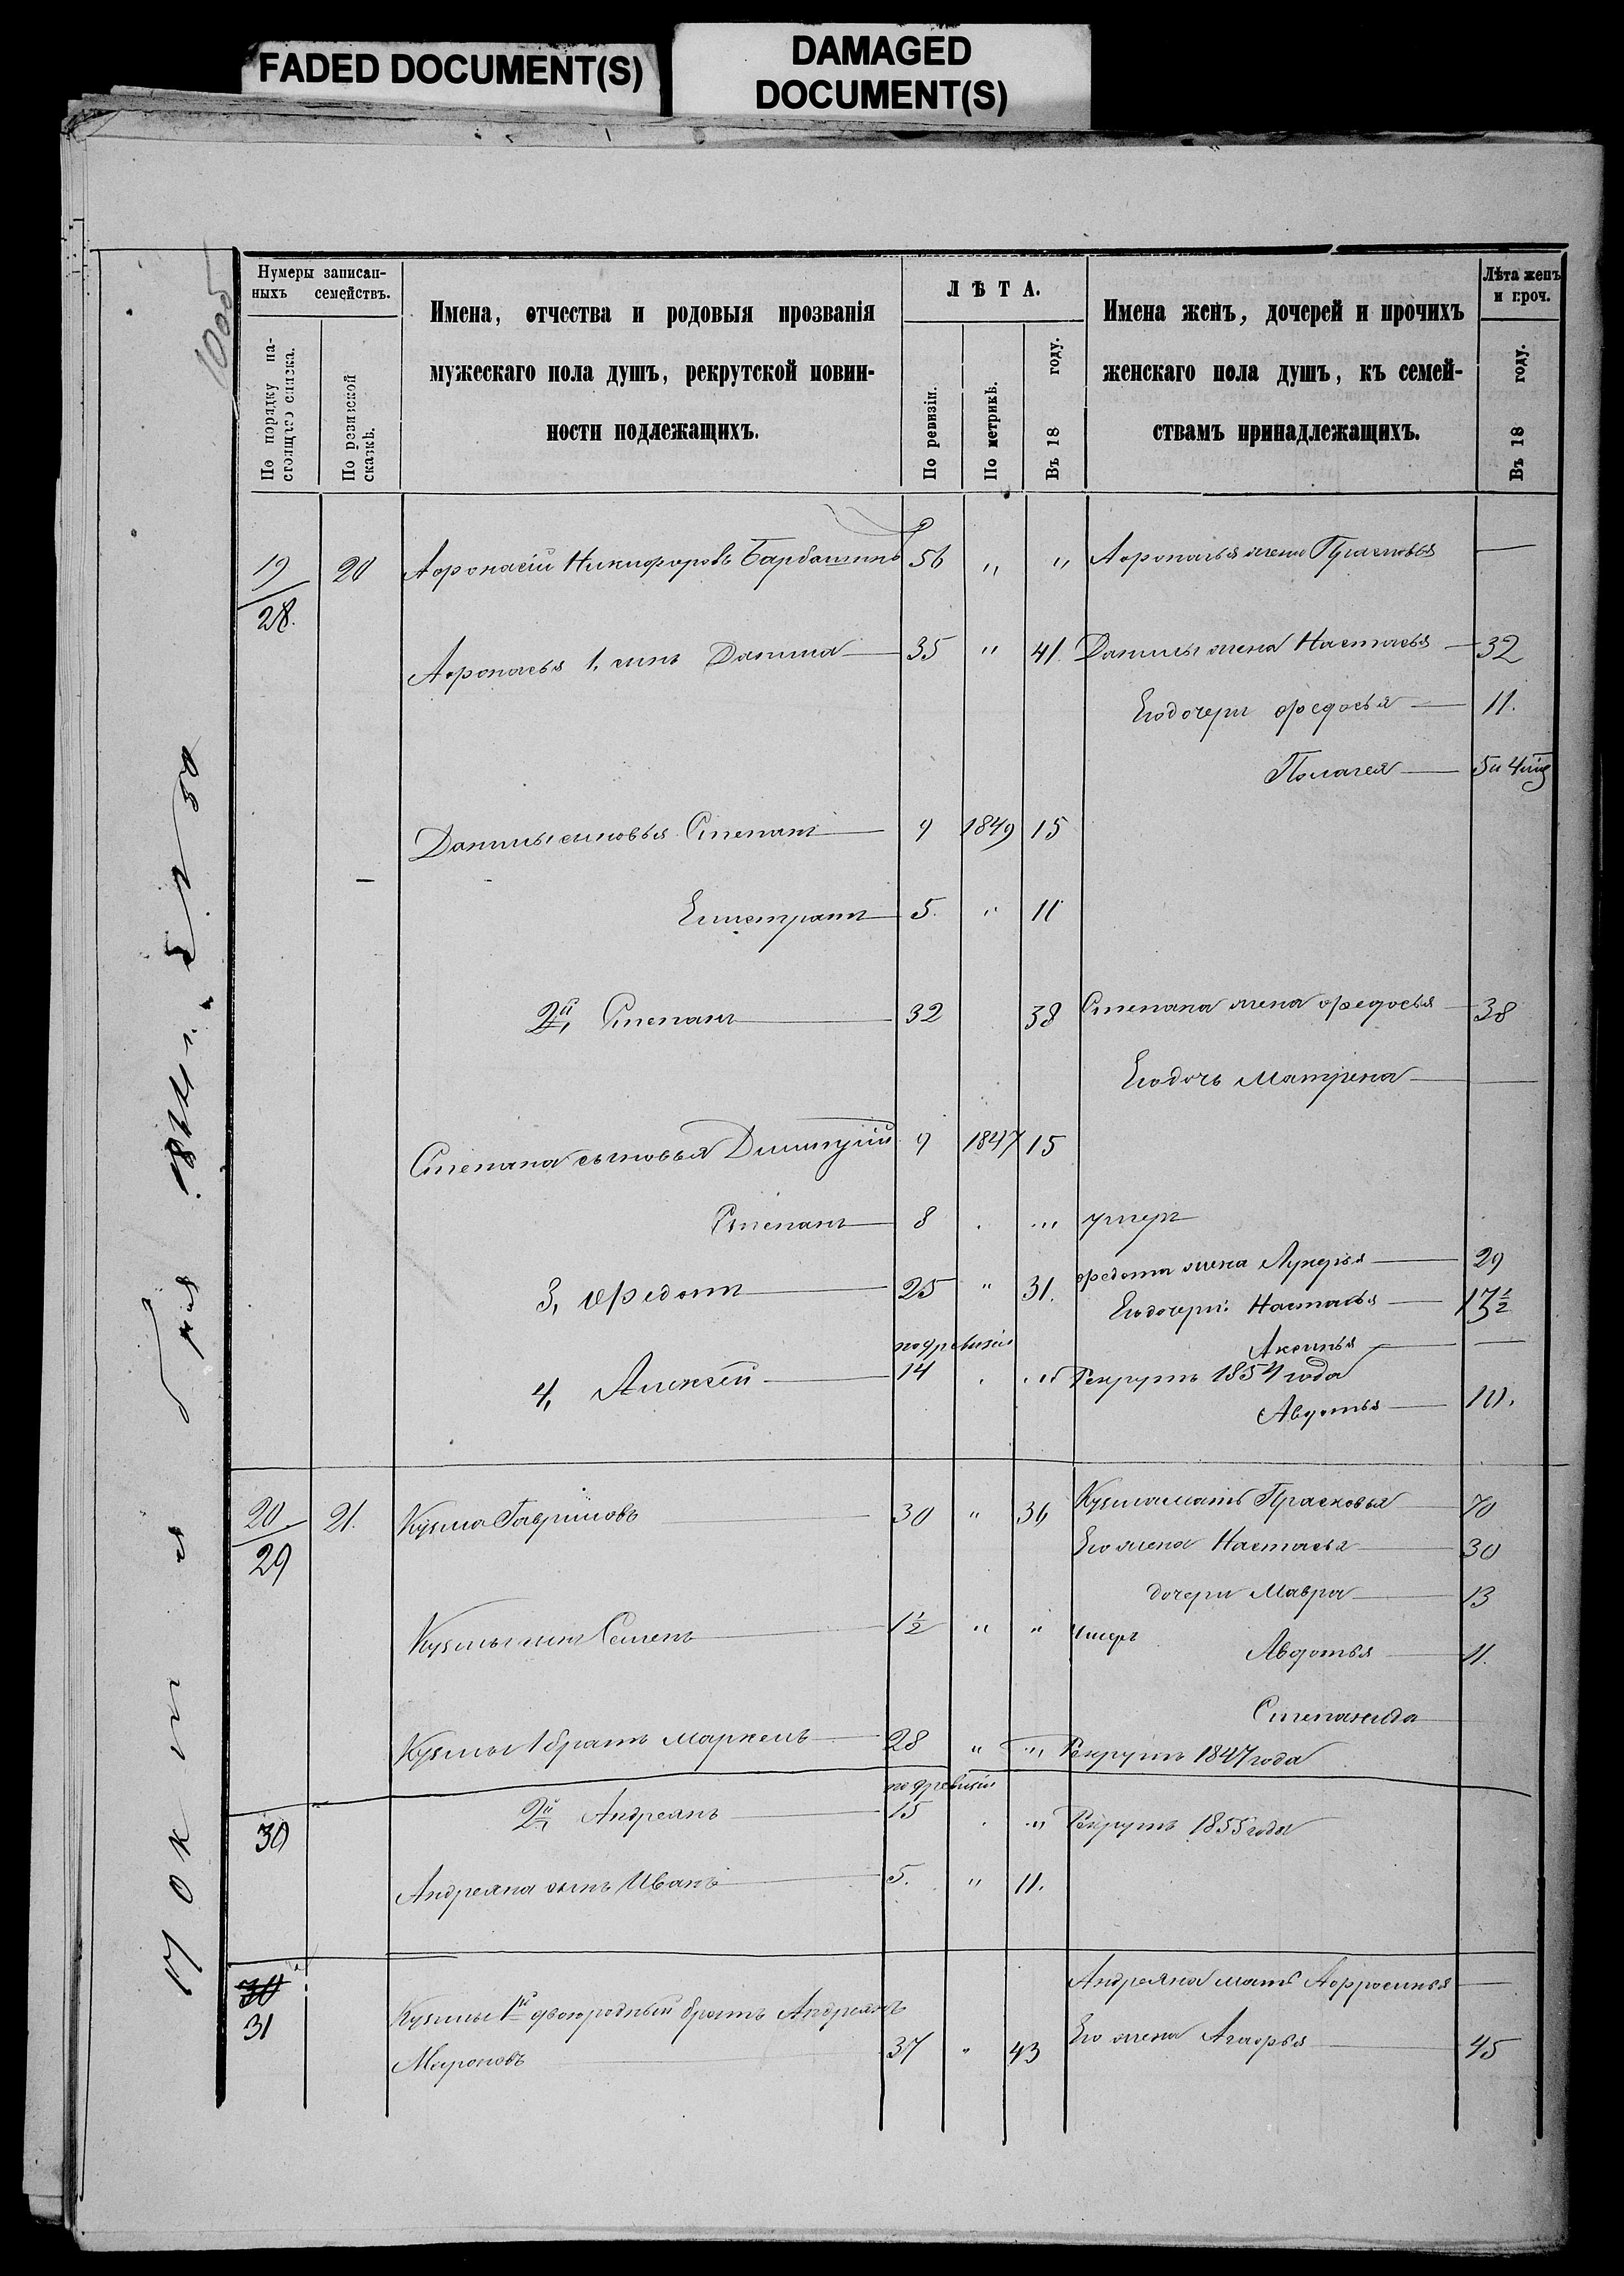 FADED DOCUMENT(S)
DAMAGED
DOCUMENT(S)
Нумеры записан-
ныхъ семействъ.
По порядку на-
стоящаго списка.
По ревизской
сказкѣ.
Имена, отчества и родовыя прозванія
мужескаго пола душъ, рекрутской повин-
ности подлежащихъ.
ЛѢТА.
По ревизіи.
По метрикѣ.
Въ 18 году.
Имена женъ, дочерей и прочихъ
женскаго пола душъ, къ семей-
ствамъ принадлежащихъ.
Лѣта женъ
и проч.
Въ 18 году.
19 20 Афонасій Никифоровъ Барбашинъ 56 " " Афонасья жена Прасковья —
28.
Афонасья 1. сынъ Данила 35 " 41. Данилы жена Настасья 32
Его дочери Федосья 11.
Полагея 5 и 4
Данилы сыновья Степанъ 9 1849 15
Елистратъ 5. " 11
2й Степанъ 32 38 Степана жена Федосья 38
Его дочь Матрена —
Степана сыновья Димитрій 9 1847 15
Степанъ 8 . ... умеръ
3, Федотъ 25 " 31. Федота жена Лукерья 29
Его дочери: Настасья 17 1/2
Аксинья —
по ревизіи
4, Алексѣй 14 . " Рекрутъ 1854 года
Авдотья 10.
20 21. Кузма Гавриловъ 30 " 36 Кузма мать Прасковья 70
29
Его жена Настасья 30
дочери Мавра 13
Кузмы сынъ Семенъ 1 1/2 " " Умеръ
Авдотья 11.
Степанида
Кузмы 1 братъ Маркелъ 28 " " Рекрутъ 1847 года
по ревизіи
30 2й Андреянъ 15 . " Рекрутъ 1855 года
Андреяна сынъ Иванъ 5. " 11.
30
31
Андреяна мать Афросинья —
Кузмы 1й двоюродный братъ Андреянъ
Мароновъ 37 " 43 Его жена Агафья 45